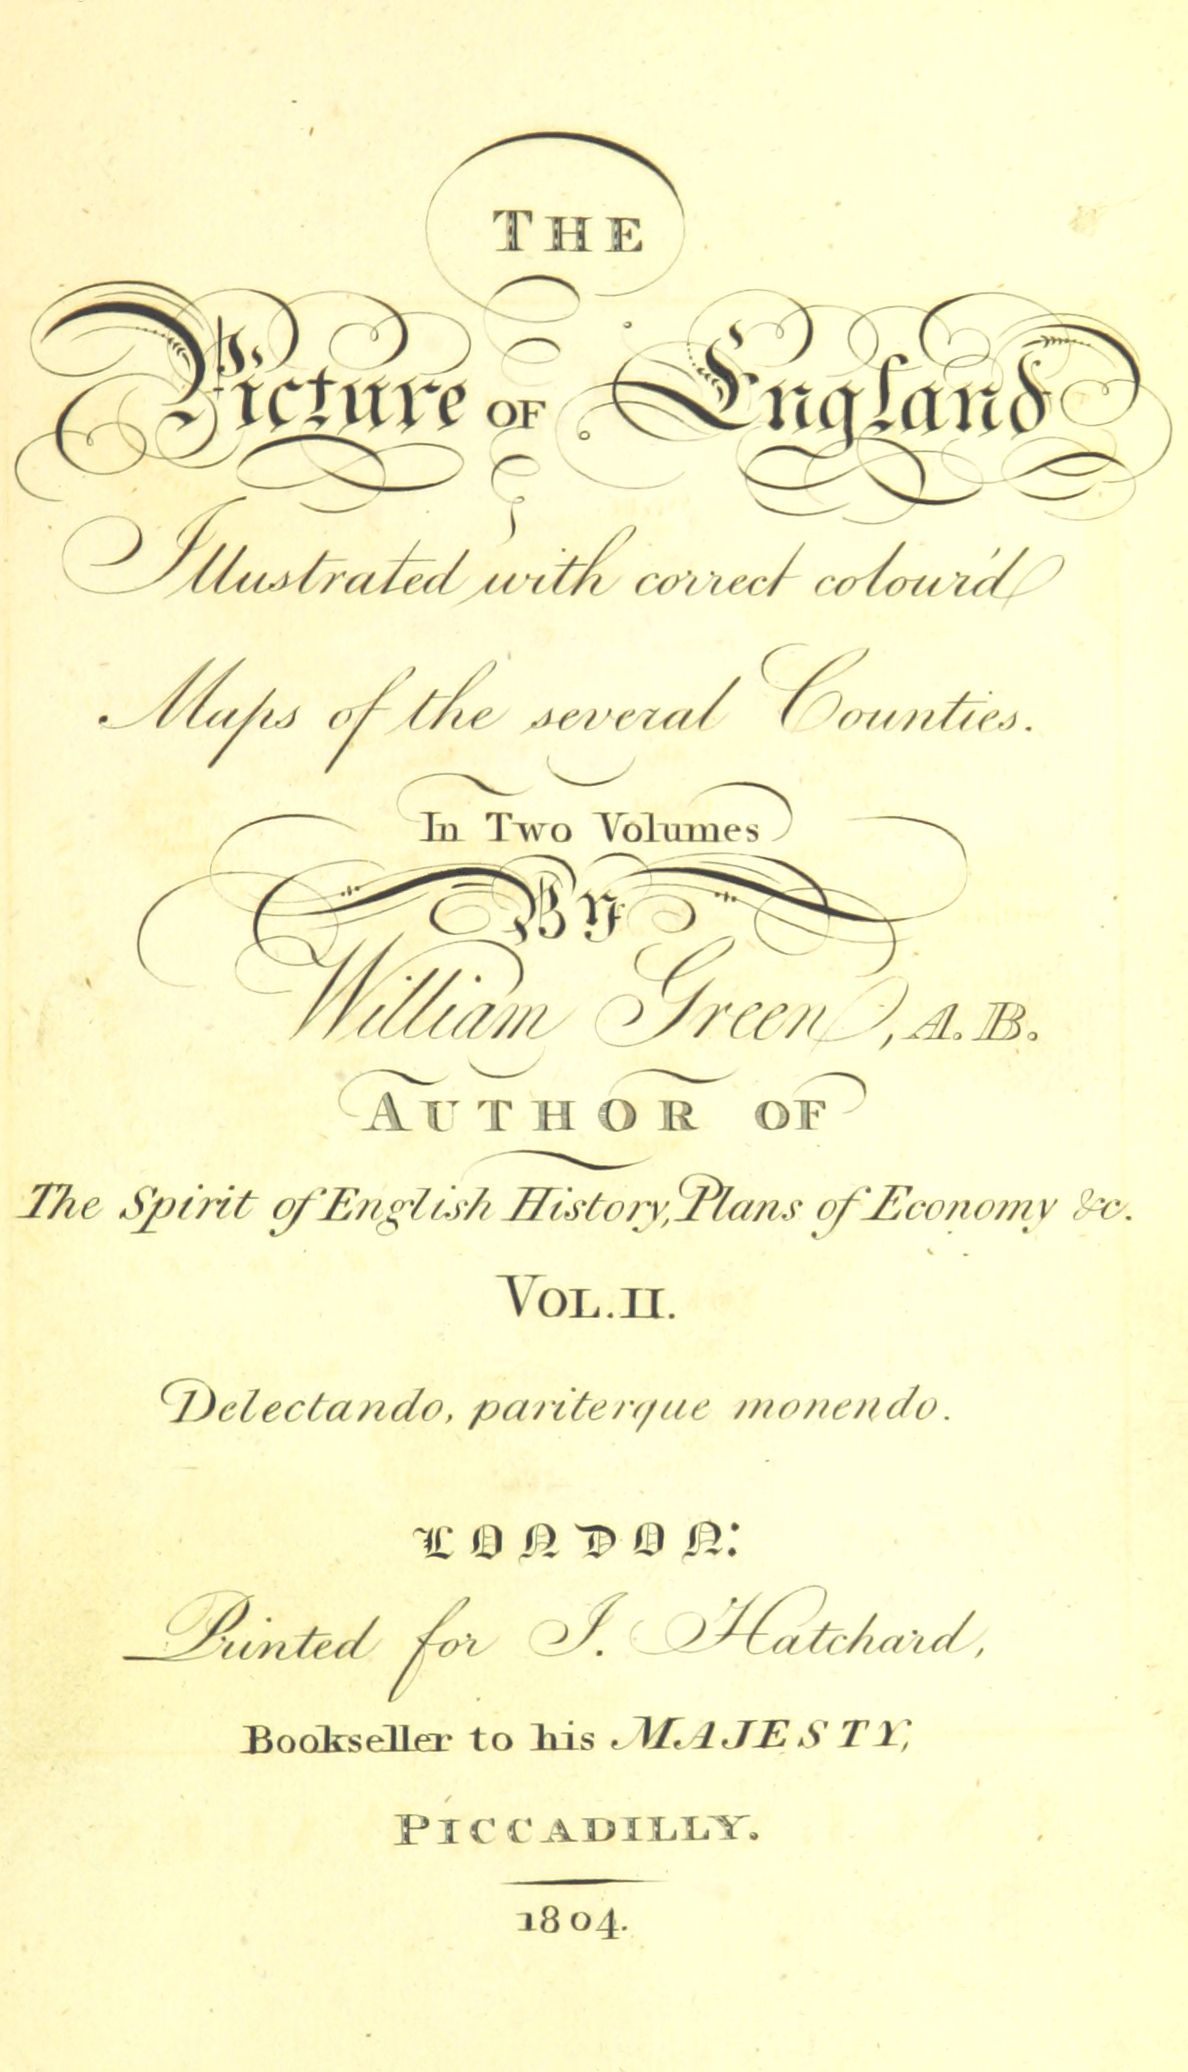 THE
Picture OF England
Illustrated with correct colour'd
Maps of the several Counties.
In Two Volumes
BY
William Green, A.B.
AUTHOR OF
The Spirit of English History, Plans of Economy &c.
VOL. II.
Delectando, pariterque monendo.
LONDON:
Printed for J. Hatchard,
Bookseller to his MAJESTY,
PICCADILLY.
1804.